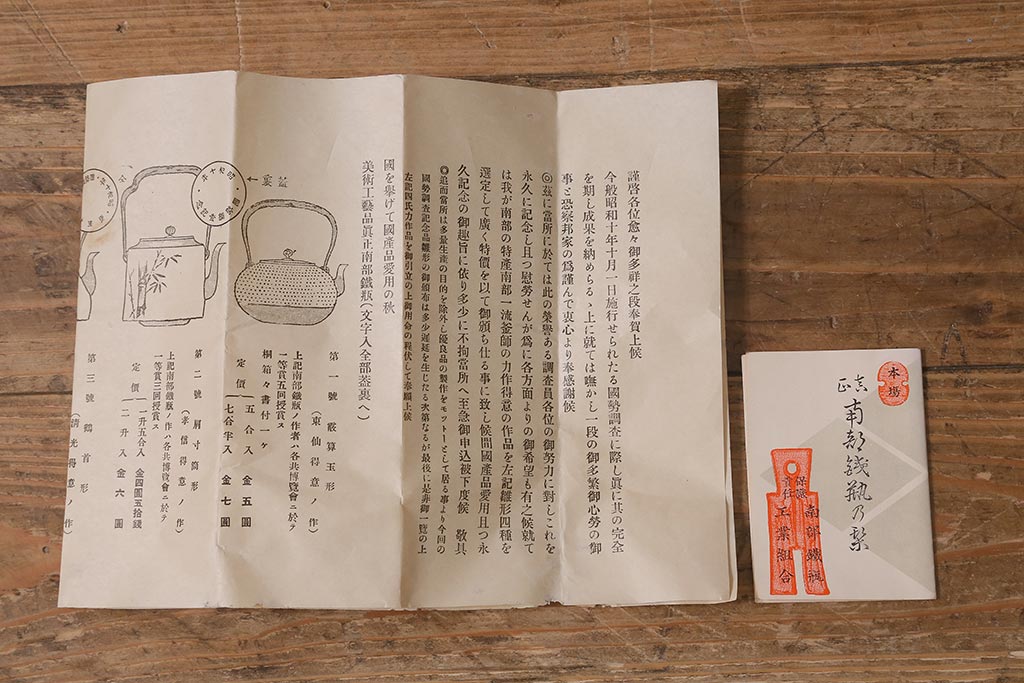 謹啓各位愈々御多祥之段奉賀上候
今般昭和十年十月一日施行せられたる國勢調査に際し眞に其の完全
を期し成果を納めらるゝ上に就ては嘸かし一段の御多繁御心勞の御
事と恐察邦家の爲謹んで衷心より奉感謝候
◎茲に當所に於ては此の榮譽ある調査員各位の御努力に對しこれを
永久に記念し且つ慰勞せんが爲に各方面よりの御希望も有之候就て
は我が南部の特産南部一流釜師の力作得意の作品を左記雛形四種を
選定して廣く特價を以て御頒ち仕る事に致し候間國產品愛用且つ永
久記念の御趣旨に依り多少に不拘當所へ至急御申込被下度候 敬具
◎追而當所は多量生產の目的を除外し優良品の製作をモットーとして居る事より今回の
國勢調査記念品雛形の御頒布は多少遲延を生じたる次第なるが最後に是非御一覽の上
左記四氏力作品を御引立の上御用命の程伏して奉願上候
國を擧げて國產品愛用の秋
美術工藝品眞正南部鐵瓶(文字入全部蓋裏へ)
蓋裏
昭和十年
國勢調査記念
第一號 霰算玉形
(東仙得意ノ作)
上記南部鐵瓶ノ作者ハ各共博覽會ニ於テ
一等賞五回授賞ス
桐箱々書付一ヶ
定價 五合入 金五圓
七合半入 金七圓
第二號 肩寸筒形
(孝信得意ノ作)
上記南部鐵瓶ノ作ハ各共博覽會ニ於テ
一等賞三回授賞ス
定價 一升五合入 金四圓五拾錢
二升入 金六圓
第三號 鶴首形
(清光得意ノ作)
本場
眞正
南部鐵瓶乃栞
保證
責任
南部鐵瓶
正業組合